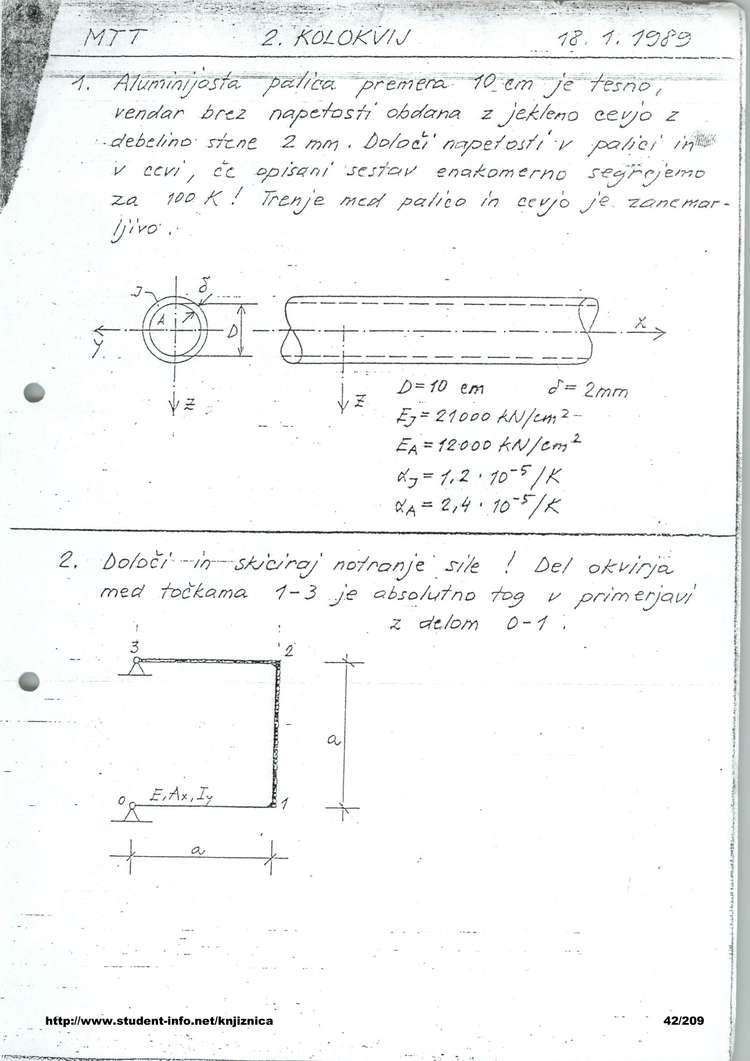 MTT 2. KOLOKVIJ 18. 1. 1989
1. Aluminijasta palica premera 10 cm je tesno,
vendar brez napetosti obdana z jekleno cevjo z
debelino stene 2 mm. Določi napetosti v palici in
v cevi, če opisani sestav enakomerno segrejemo
za 100 K! Trenje med palico in cevjo je zanemar-
ljivo.
J δ
A D x
y
z z
D = 10 cm δ = 2mm
EJ = 21000 kN/cm²
EA = 12000 kN/cm²
αJ = 1,2 · 10⁻⁵/K
αA = 2,4 · 10⁻⁵/K
2. Določi in skiciraj notranje sile! Del okvirja
med točkama 1-3 je absolutno tog v primerjavi
z delom 0-1.
3 2
a
0 E, Ax, Iy 1
a
http://www.student-info.net/knjiznica 42/209